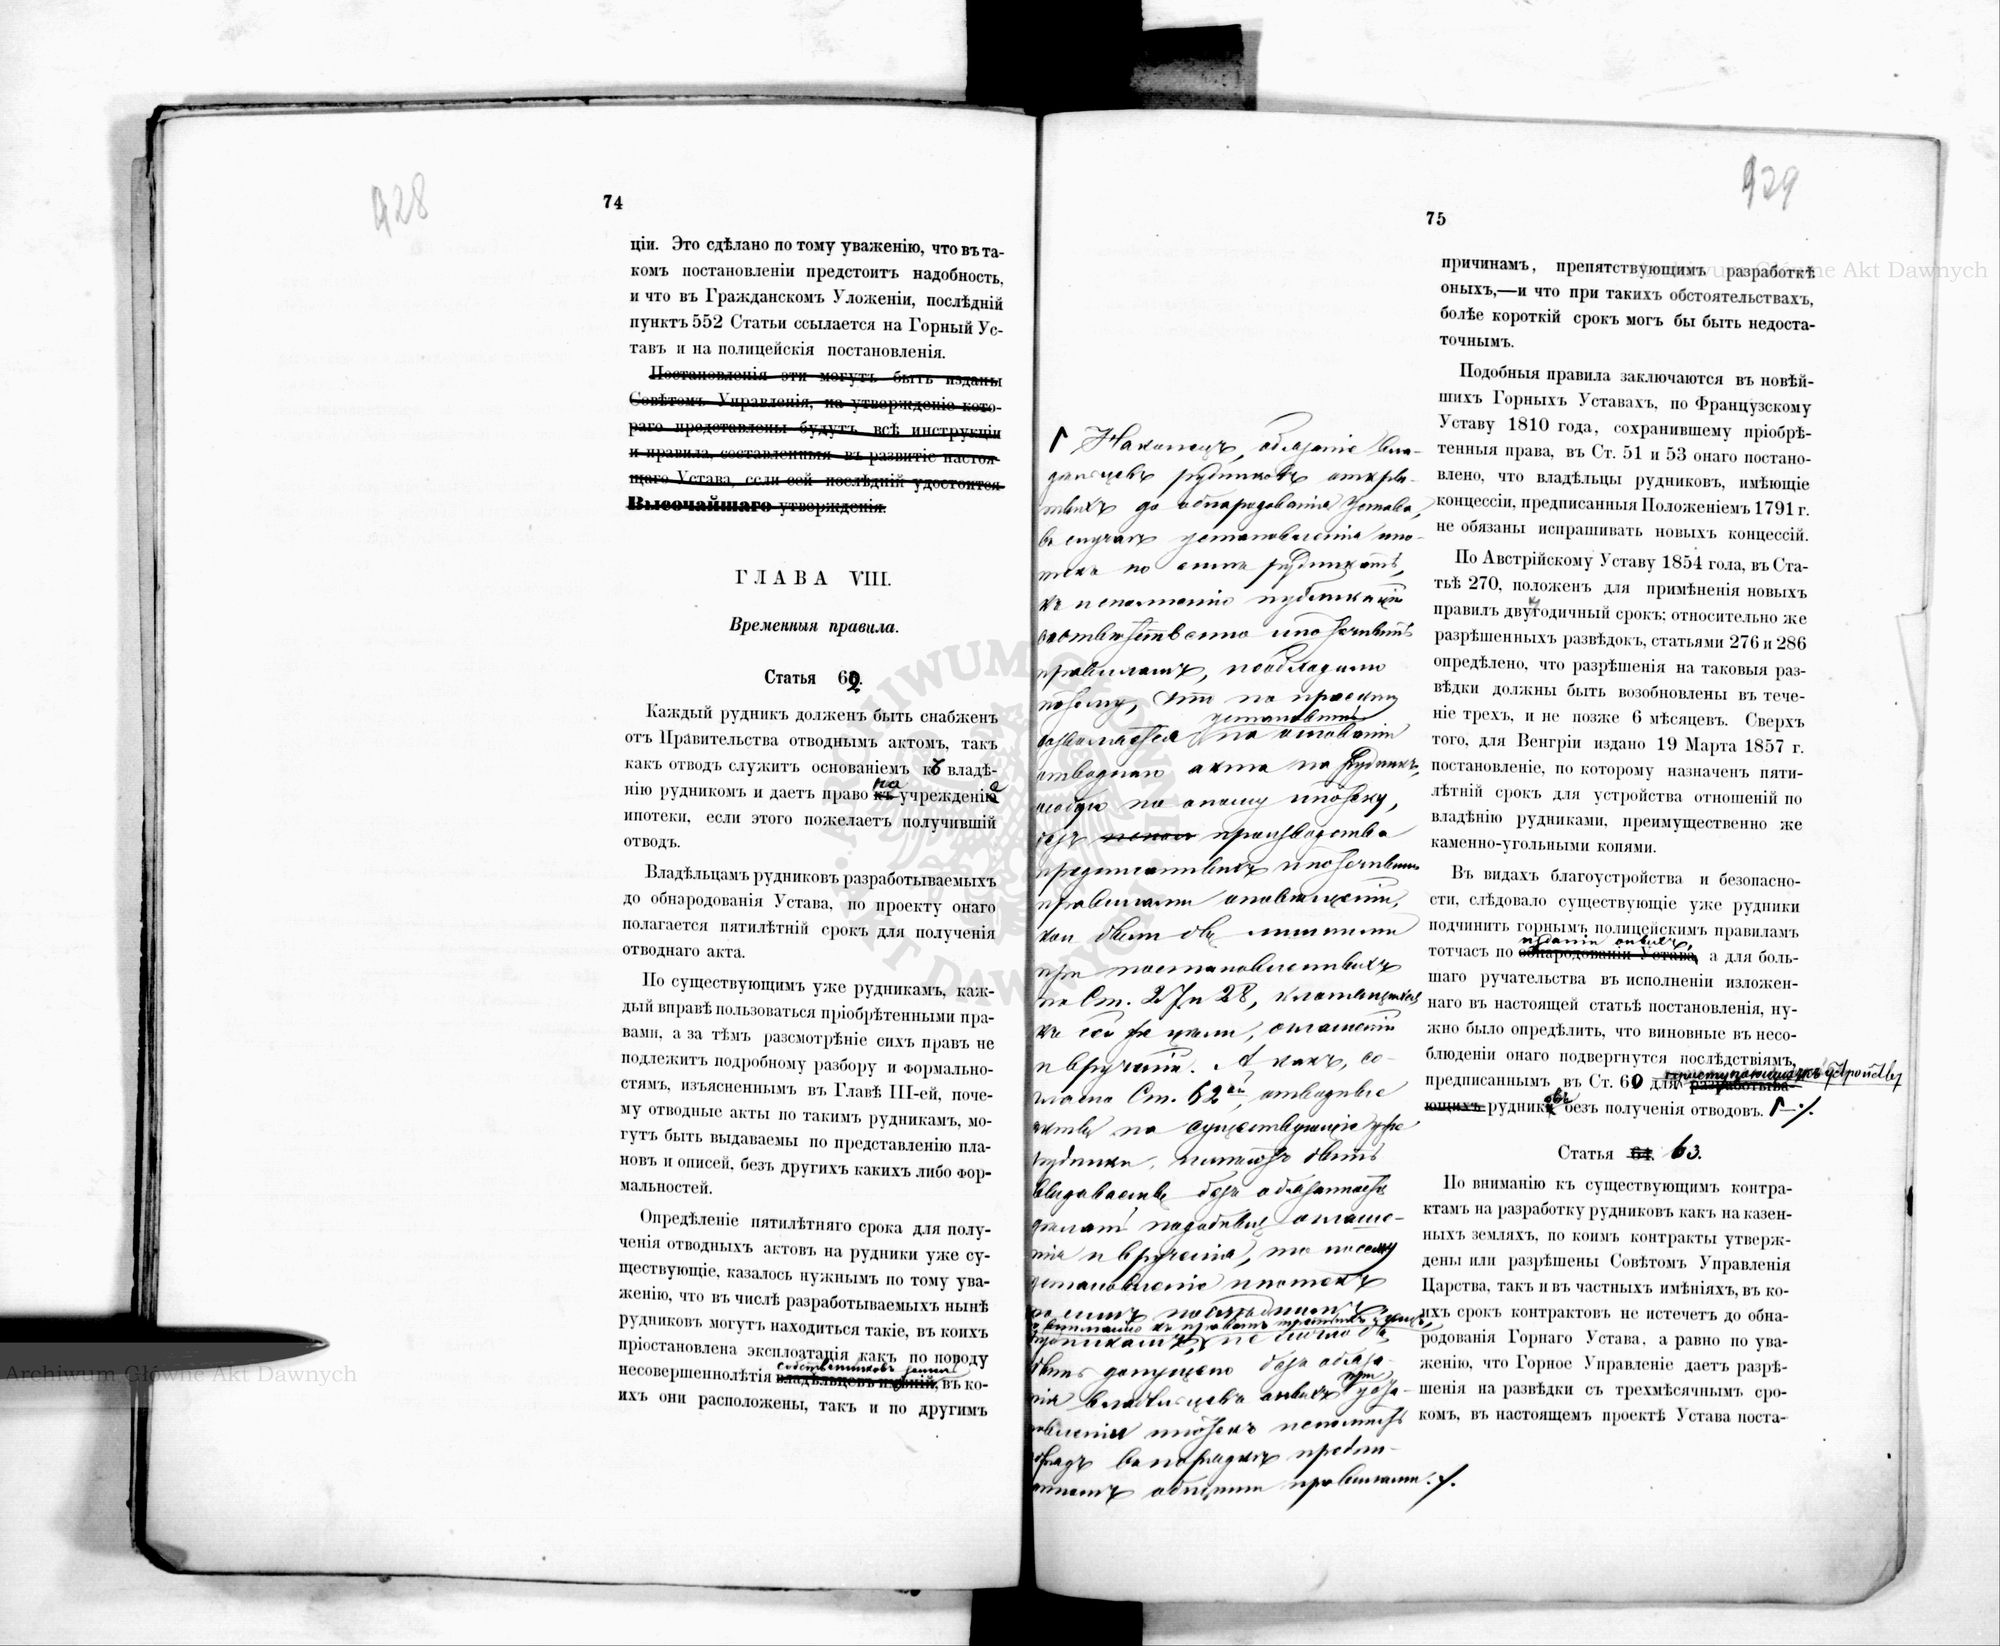 928
74
ціи. Это сдѣлано по тому уваженію, что въ та-
комъ постановленіи предстоитъ надобность,
и что въ Гражданскомъ Уложеніи, послѣдній
пунктъ 552 Статьи ссылается на Горный Ус-
тавъ и на полицейскія постановленія.
Постановленія эти могутъ быть изданы
Совѣтомъ Управленія, на утвержденіе кото-
раго представлены будутъ всѣ инструкціи
и правила, составленныя въ развитіе настоя-
щаго Устава, если сей послѣдній удостоится
Высочайшаго утвержденія.
ГЛАВА VIII.
Временныя правила.
Статья 62.
Каждый рудникъ долженъ быть снабженъ
отъ Правительства отводнымъ актомъ, такъ
какъ отводъ служитъ основаніемъ къ владѣ-
на
нію рудникомъ и даетъ право къ учрежденіе
ипотеки, если этого пожелаетъ получившій
отводъ.
Владѣльцамъ рудниковъ разработываемыхъ
до обнародованія Устава, по проекту онаго
полагается пятилѣтній срокъ для полученія
отводнаго акта.
По существующимъ уже рудникамъ, каж-
дый вправѣ пользоваться пріобрѣтенными пра-
вами, а за тѣмъ разсмотрѣніе сихъ правъ не
подлежитъ подробному разбору и формально-
стямъ, изъясненнымъ въ Главѣ III-ей, поче-
му отводные акты по такимъ рудникамъ, мо-
гутъ быть выдаваемы по представленію пла-
новъ и описей, безъ другихъ какихъ либо фор-
мальностей.
Опредѣленіе пятилѣтняго срока для полу-
ченія отводныхъ актовъ на рудники уже су-
ществующіе, казалось нужнымъ по тому ува-
женію, что въ числѣ разработываемыхъ нынѣ
рудниковъ могутъ находиться такіе, въ коихъ
пріостановлена эксплоатація какъ по поводу
собственниковъ земли
несовершеннолѣтія владѣльцевъ имѣній, въ ко-
ихъ они расположены, такъ и по другимъ
929
75
причинамъ, препятствующимъ разработкѣ
оныхъ,—и что при такихъ обстоятельствахъ,
болѣе короткій срокъ могъ бы быть недоста-
точнымъ.
Подобныя правила заключаются въ новѣй-
шихъ Горныхъ Уставахъ, по Французскому
Уставу 1810 года, сохранившему пріобрѣ-
тенныя права, въ Ст. 51 и 53 онаго постано-
влено, что владѣльцы рудниковъ, имѣющіе
концессіи, предписанныя Положеніемъ 1791 г.
не обязаны испрашивать новыхъ концессій.
По Австрійскому Уставу 1854 гола, въ Ста-
тьѣ 270, положенъ для примѣненія новыхъ
правилъ двугодичный срокъ; относительно же
разрѣшенныхъ развѣдокъ, статьями 276 и 286
опредѣлено, что разрѣшенія на таковыя раз-
вѣдки должны быть возобновлены въ тече-
ніе трехъ, и не позже 6 мѣсяцевъ. Сверхъ
того, для Венгріи издано 19 Марта 1857 г.
постановленіе, по которому назначенъ пяти-
лѣтній срокъ для устройства отношеній по
владѣнію рудниками, преимущественно же
каменно-угольными копями.
Въ видахъ благоустройства и безопасно-
сти, слѣдовало существующіе уже рудники
подчинить горнымъ полицейскимъ правиламъ
изданіи оныхъ,
тотчасъ по обнародованіи Устава, а для боль-
шаго ручательства въ исполненіи изложен-
наго въ настоящей статьѣ постановленія, ну-
жно было опредѣлить, что виновные въ несо-
блюденіи онаго подвергнутся послѣдствіямъ,
приступающихъ къ устройству
предписаннымъ въ Ст. 60 для разработыва-
ющихъ рудниковъ безъ полученія отводовъ.
Статья 64. 63.
По вниманію къ существующимъ контра-
ктамъ на разработку рудниковъ какъ на казен-
ныхъ земляхъ, по коимъ контракты утверж-
дены или разрѣшены Совѣтомъ Управленія
Царства, такъ и въ частныхъ имѣніяхъ, въ ко-
ихъ срокъ контрактовъ не истечетъ до обна-
родованія Горнаго Устава, а равно по ува-
женію, что Горное Управленіе даетъ разрѣ-
шенія на развѣдки съ трехмѣсячнымъ сро-
комъ, въ настоящемъ проектѣ Устава поста-
Наконецъ, обязаніе вла-
дѣльцевъ рудниковъ откры-
тыхъ до обнародованія Устава,
въ случаѣ установленія ипо-
правиламъ, необходимо
отводнаго акта на рудникъ,
особую по оному ипотеку,
безъ производства
предписанныхъ ипотечными
правилами оповѣщеній,
при постановленныхъ
по Ст. 27 и 28,
и врученіи. А какъ, со-
гласно Ст. 62ой, отводные
акты на существующіе уже
рудники, могутъ быть
выдаваемы безъ обязанности
и врученія, то посему
установленіе ипотекъ
быть допущено безъ обяза-
обрядъ въ порядкѣ предпи-
санномъ общими правилами.
Archiwum Główne Akt Dawnych
Archiwum Główne Akt Dawnych
ARCHIWUM GŁÓWNE AKT DAWNYCH